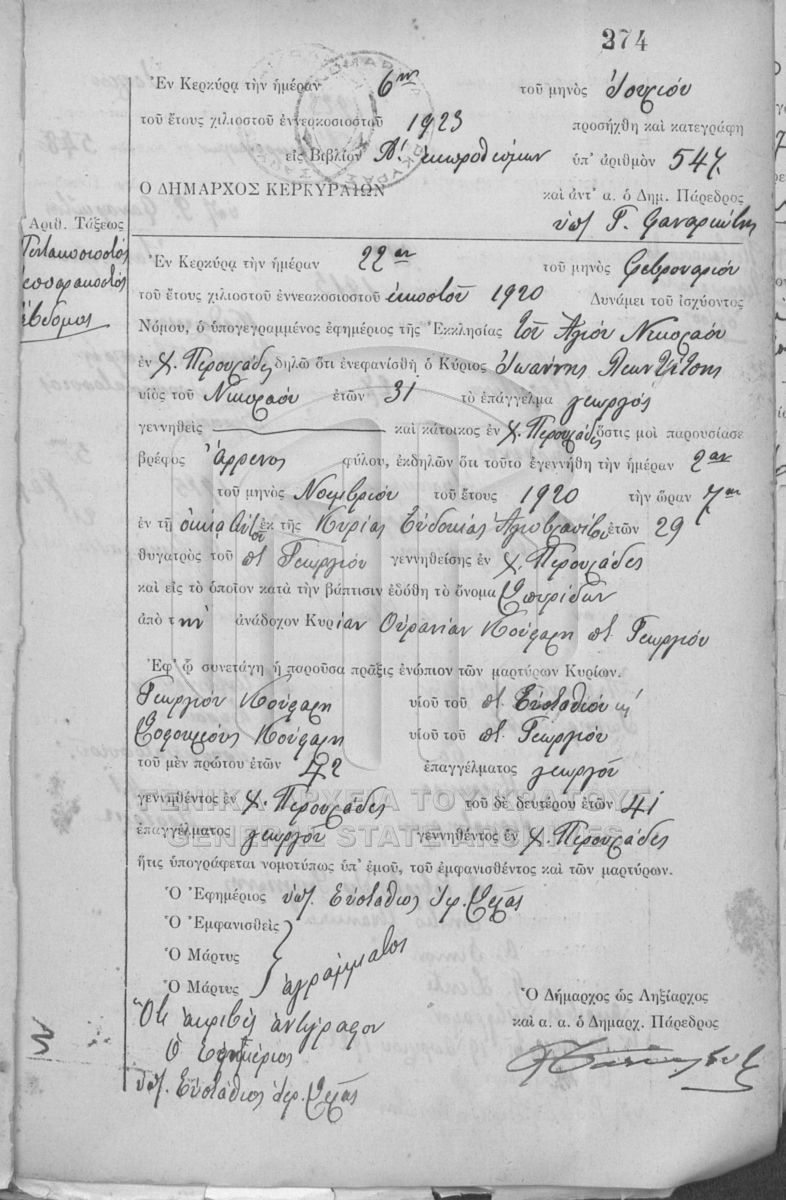 374
Ἐν Κερκύρᾳ τὴν ἡμέραν 6ην τοῦ μηνὸς Ἰουλίου
τοῦ ἔτους χιλιοστοῦ ἐννεακοσιοστοῦ 1923 προσήχθη καὶ κατεγράφη
εἰς Βιβλίον Β! ἐκπροθέσμων ὑπ' ἀριθμὸν 547.
Ὁ ΔΗΜΑΡΧΟΣ ΚΕΡΚΥΡΑΙΩΝ καὶ ἀντ' α. ὁ Δημ. Πάρεδρος
ὑπ/ Γ. Φαναριώτης
Ἀριθ. Τάξεως
Πεντακοσιοστὸς
τεσσαρακοστὸς
ἕβδομος
Ἐν Κερκύρᾳ τὴν ἡμέραν 22αν τοῦ μηνὸς Φεβρουαρίου
τοῦ ἔτους χιλιοστοῦ ἐννεακοσιοστοῦ εἰκοστοῦ 1920 Δυνάμει τοῦ ἰσχύοντος
Νόμου, ὁ ὑπογεγραμμένος ἐφημέριος τῆς Ἐκκλησίας τοῦ Ἁγίου Νικολάου
ἐν χ. Περουλάδες δηλῶ ὅτι ἐνεφανίσθη ὁ Κύριος Ἰωάννης
υἱὸς τοῦ Νικολάου ἐτῶν 31 τὸ ἐπάγγελμα γεωργός
γεννηθεὶς καὶ κάτοικος ἐν χ. Περουλάδες ὅστις μοὶ παρουσίασε
βρέφος Ἄρρενος φύλου, ἐκδηλῶν ὅτι τοῦτο ἐγεννήθη τὴν ἡμέραν 2αν
τοῦ μηνὸς Νοεμβρίου τοῦ ἔτους 1920 τὴν ὥραν 7ην
ἐν τῇ οἰκίᾳ αὐτοῦ ἐκ τῆς Κυρίας Εὐδοκίας ἐτῶν 29
θυγατρὸς τοῦ πτ Γεωργίου γεννηθείσης ἐν χ. Περουλάδες
καὶ εἰς τὸ ὁποῖον κατὰ τὴν βάπτισιν ἐδόθη τὸ ὄνομα Σπυρίδων
ἀπὸ τὴν ἀνάδοχον Κυρίαν Οὐρανίαν Κούφαρη πτ Γεωργίου
Ἐφ' ᾧ συνετάγη ἡ παροῦσα πρᾶξις ἐνώπιον τῶν μαρτύρων Κυρίων.
Γεωργίου Κούφαρη υἱοῦ τοῦ πτ Εὐσταθίου κ'
Κούφαρη υἱοῦ τοῦ πτ Γεωργίου
τοῦ μὲν πρώτου ἐτῶν 42 ἐπαγγέλματος γεωργοῦ
γεννηθέντος ἐν χ. Περουλάδες τοῦ δὲ δευτέρου ἐτῶν 41
ἐπαγγέλματος γεωργοῦ γεννηθέντος ἐν χ. Περουλάδες
ἥτις ὑπογράφεται νομοτύπως ὑπ' ἐμοῦ, τοῦ ἐμφανισθέντος καὶ τῶν μαρτύρων.
Ὁ Ἐφημέριος ὑπ/. Εὐστάθιος Ἱερ.
Ὁ Ἐμφανισθεὶς
Ὁ Μάρτυς
Ὁ Μάρτυς ἀγράμματος
Ὅτι ἀκριβὲς ἀντίγραφον
Ὁ Ἐφημέριος
ὑπ/. Εὐστάθιος Ἱερ.
Ὁ Δήμαρχος ὡς Ληξίαρχος
καὶ α. α. ὁ Δημαρχ. Πάρεδρος
ΓΕΝΙΚΑ ΑΡΧΕΙΑ ΤΟΥ ΚΡΑΤΟΥΣ
GENERAL STATE ARCHIVES